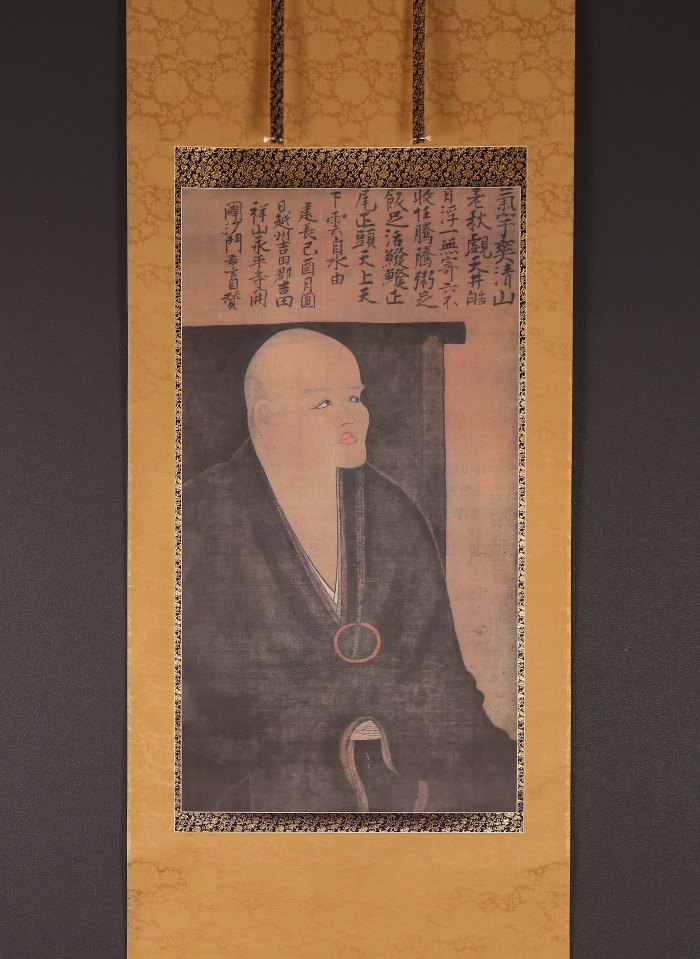 氣宇爽清山
老秋覷天井皓
月浮一無寄六不
收任騰騰粥足
飯足活鱍鱍正
尾正頭天上天
下雲自水由
建長己酉月圓
日越州吉田郡吉田
祥山永平寺開
闢沙門希玄自賛